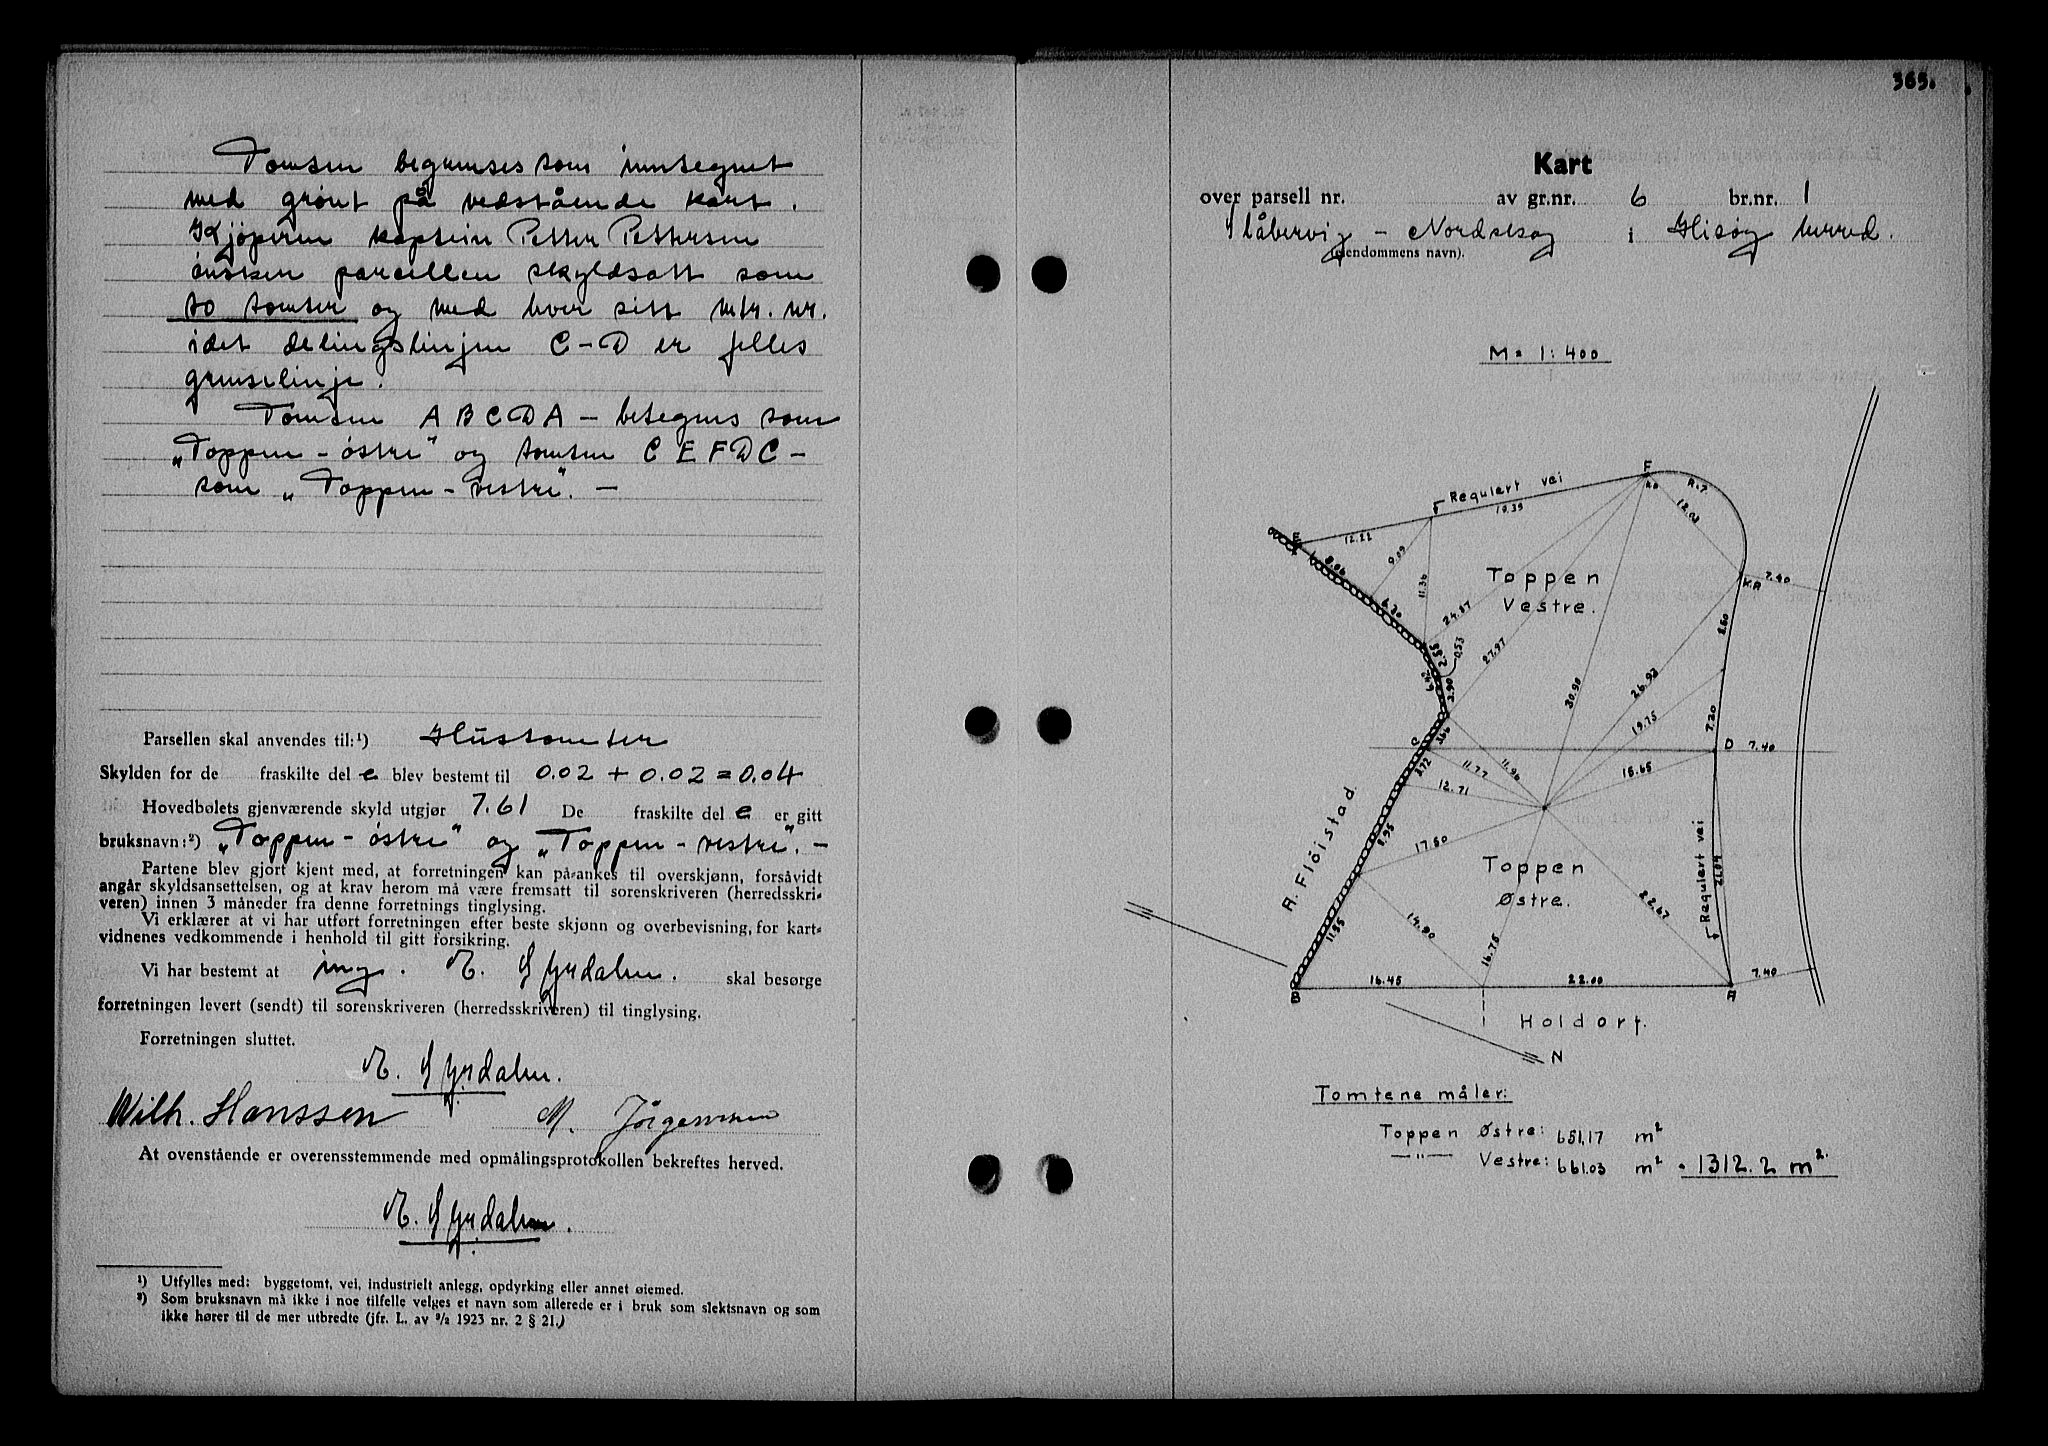 Tomten begrenses som inntegnet
med grønt på vedstående kart.
Kjøperen kaptein Petter Pettersen
ønsker parcellen skyldsatt som
to tomter og med hver sitt m/r. nr.
idet delingslinjen C-D er felles
grenselinje.
Tomten A B C D A - betegnes som
„Toppen - østre" og tomten C E F D C -
som „Toppen - vestre". -
Parsellen skal anvendes til:¹) Hustomter
Skylden for de fraskilte del e blev bestemt til 0.02 + 0.02 = 0.04
Hovedbølets gjenværende skyld utgjør 7.61 De fraskilte del e er gitt
bruksnavn:²) „Toppen - østre" og „Toppen - vestre". -
Partene blev gjort kjent med, at forretningen kan på-ankes til overskjønn, forsåvidt
angår skyldsansettelsen, og at krav herom må være fremsatt til sorenskriveren (herredsskri-
veren) innen 3 måneder fra denne forretnings tinglysing.
Vi erklærer at vi har utført forretningen efter beste skjønn og overbevisning, for kart-
vidnenes vedkommende i henhold til gitt forsikring.
Vi har bestemt at ing. N. Syrdalen. skal besørge
forretningen levert (sendt) til sorenskriveren (herredsskriveren) til tinglysing.
Forretningen sluttet.
N. Syrdalen.
Wilh. Hanssen M. Jörgensen
At ovenstående er overensstemmende med opmålingsprotokollen bekreftes herved.
N. Syrdalen.
¹) Utfylles med: byggetomt, vei, industrielt anlegg, opdyrking eller annet øiemed.
²) Som bruksnavn må ikke i noe tilfelle velges et navn som allerede er i bruk som slektsnavn og som
ikke hører til de mer utbredte (jfr. L. av ⁹/₂ 1923 nr. 2 § 21.)
363.
Kart
over parsell nr. av gr.nr. 6 br.nr. 1
Slåbervig - Nordskog i Hisøy herred.
(eiendommens navn).
M = 1:400
F
R.7
Regulert vei
19.39
12.03
E
12.22
9.09
11.36
8.06
Toppen
Vestre.
K.A
7.40
6.20
24.87
8.60
0.53
2.55
27.97
6.42
3.90
30.90
26.93
19.75
7.20
C
3.66
D 7.40
3.72
11.77
11.90
15.65
12.71
8.95
17.60
A. Flöistad
Toppen
Østre.
Regulert vei
21.04
22.67
11.55
14.90
16.75
B
16.45
22.00
A
7.40
Holdorf.
N
Tomtene måler:
Toppen Østre: 651,17 m²
—"— Vestre: 661.03 m² = 1312.2 m².